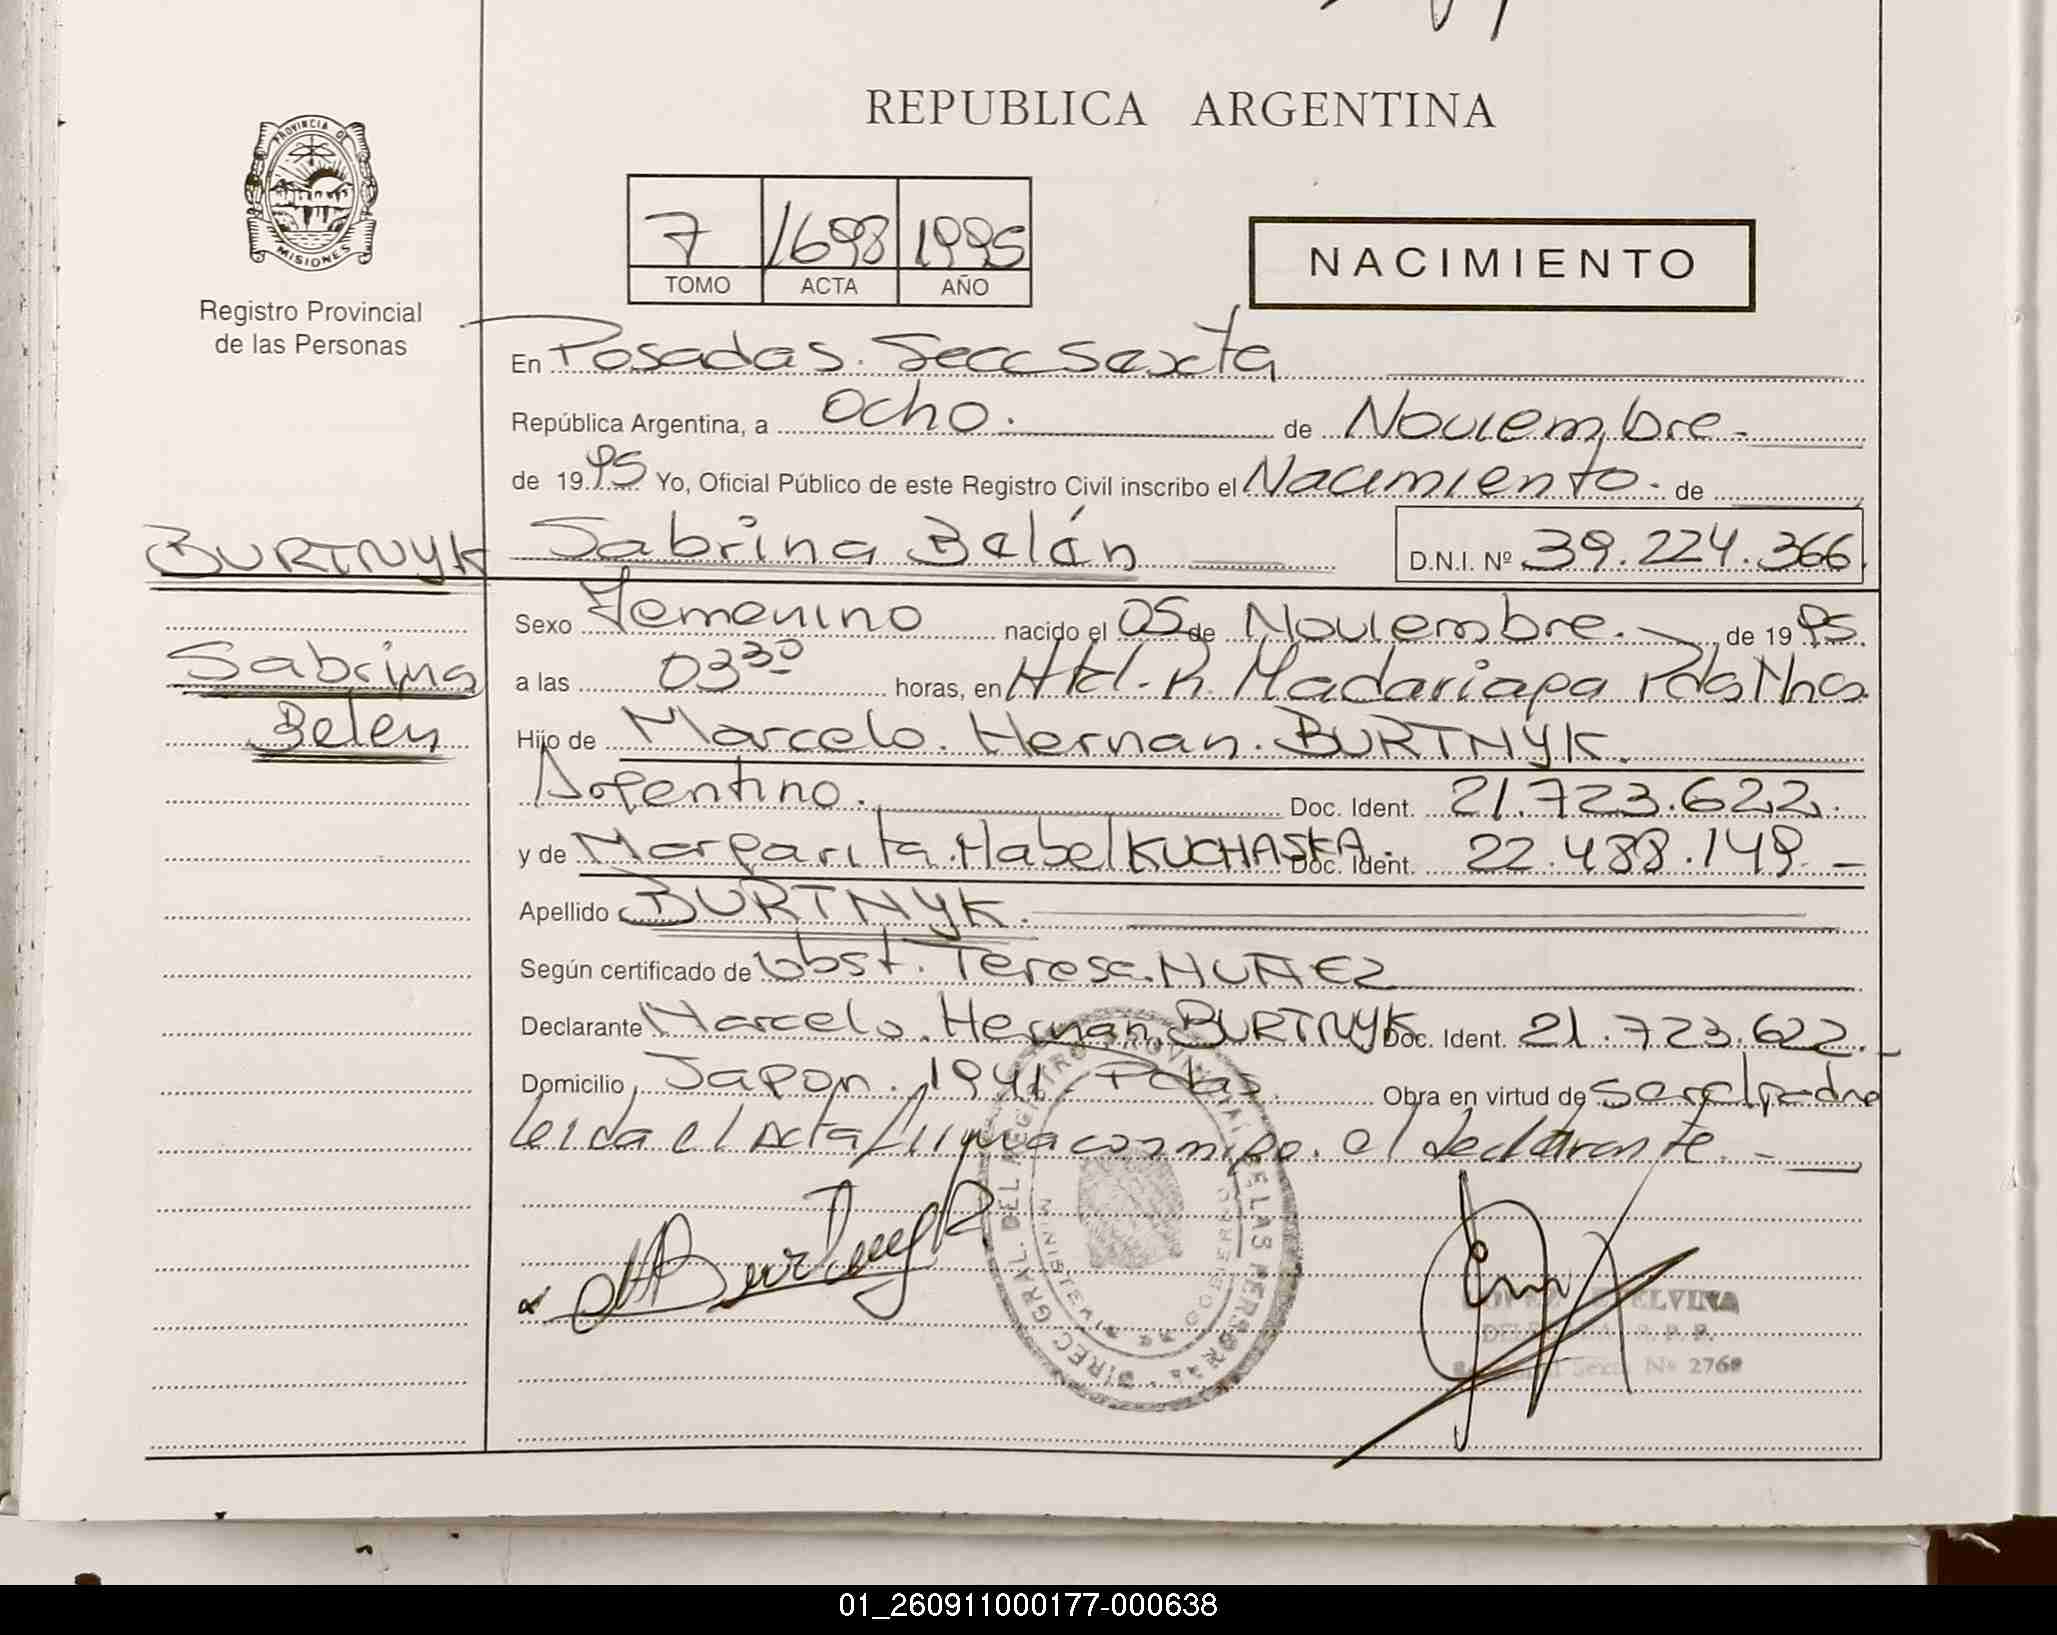 REPUBLICA ARGENTINA
PROVINCIA DE
MISIONES
Registro Provincial
de las Personas
7 1698 1995
TOMO ACTA AÑO
NACIMIENTO
En Posadas. Secc Sexta
República Argentina, a ocho. de Noviembre.
de 1995 Yo, Oficial Público de este Registro Civil inscribo el Nacimiento. de
BURTNYK Sabrina Belén D.N.I. Nº 39.224.366
Sexo Femenino nacido el 05 de Noviembre. de 1995.
Sabrina
a las 03 30 horas, en Htal. R. Madariaga Pdas Mnes.
Belén
Hijo de Marcelo. Hernan. BURTNYK.
Argentino. Doc. Ident. 21.723.622.
y de Margarita. Mabel KUCHASKA. Doc. Ident. 22.488.149. -
Apellido BURTNYK.
Según certificado de obst. Teresa. NUÑEZ
Declarante Marcelo. Hernan. BURTNYK Doc. Ident. 21.723.622. -
Domicilio Japon. 1941. Pdas. Obra en virtud de ser el padre
leida el Acta firma conmigo. el declarante. -
Burtnyk
DIREC. GRAL. DEL REGISTRO PROVINCIAL DE LAS PERSONAS
GOBIERNO
LOPEZ ELVINA
R. P. P.
Sexta Nº 2768
01_260911000177-000638